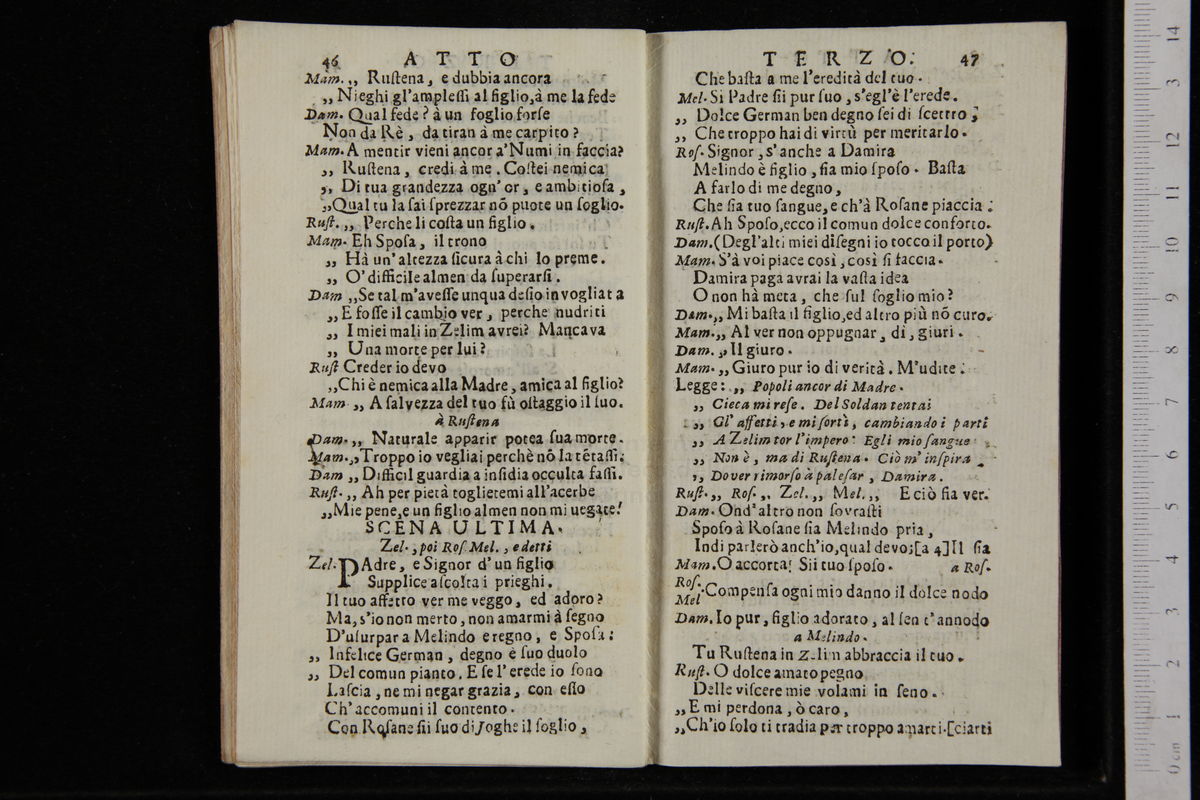 46 ATTO
Mam. ,, Ruſtena, e dubbia ancora
,, Nieghi gl'ampleſſi al figlio, à me la fede
Dam. Qual fede? à un foglio forſe
Non da Rè, da tiran à me carpito?
Mam. A mentir vieni ancor a' Numi in faccia?
,, Ruſtena, credi à me. Coſtei nemica
,, Di tua grandezza ogn' or, e ambitioſa,
,, Qual tu la fai ſprezzar nõ puote un ſoglio.
Ruſt. ,, Perche li coſta un figlio.
Mam. Eh Spoſa, il trono
,, Hà un' altezza ſicura à chi lo preme.
,, O' difficile almen da ſuperarſi.
Dam ,, Se tal m'aveſſe unqua deſio invogliata
,, E foſſe il cambio ver, perche nudriti
,, I miei mali in Zelim avrei? Mancava
,, Una morte per lui?
Ruſt Creder io devo
,, Chi è nemica alla Madre, amica al figlio?
Mam ,, A ſalvezza del tuo fù oſtaggio il ſuo.
à Ruſtena
Dam. ,, Naturale apparir potea ſua morte.
Mam. ,, Troppo io vegliai perchè nõ la tẽtaſſi;
Dam ,, Difficil guardia a inſidia occulta faſſi.
Ruſt. ,, Ah per pietà toglietemi all'acerbe
,, Mie pene, e un figlio almen non mi negate!
SCENA ULTIMA.
Zel., poi Roſ. Mel., e detti
Zel. PAdre, e Signor d' un figlio
Supplice aſcolta i prieghi.
Il tuo affetto ver me veggo, ed adoro?
Ma, s'io non merto, non amarmi à ſegno
D'uſurpar a Melindo e regno, e Spoſa;
,, Infelice German, degno è ſuo duolo
,, Del comun pianto. E ſe l' erede io ſono
Laſcia, ne mi negar grazia, con eſſo
Ch' accomuni il contento.
Con Roſane ſii ſuo di Joghe il ſoglio,
TERZO. 47
Che baſta a me l'eredità del tuo.
Mel. Si Padre ſii pur ſuo, s'egl'è l'erede.
,, Dolce German ben degno ſei di ſcettro;
,, Che troppo hai di virtù per meritarlo.
Roſ. Signor, s' anche a Damira
Melindo è figlio, ſia mio ſpoſo. Baſta
A farlo di me degno,
Che ſia tuo ſangue, e ch'à Roſane piaccia:
Ruſt. Ah Spoſo, ecco il comun dolce conforto.
Dam. (Degl'alti miei diſegni io tocco il porto)
Mam. S'à voi piace così, così ſi faccia.
Damira paga avrai la vaſta idea
O non hà meta, che ſul ſoglio mio?
Dam. ,, Mi baſta il figlio, ed altro più nõ curo.
Mam. ,, Al ver non oppugnar, di, giuri.
Dam. ,, Il giuro.
Mam. ,, Giuro pur io di verità. M'udite:
Legge: ,, Popoli ancor di Madre.
,, Cieca mi reſe. Del Soldan tentai
,, Gl' affetti, e mi ſortì, cambiando i parti
,, A Zelim tor l'impero: Egli mio ſangue
,, Non è, ma di Ruſtena. Ciò m' inſpira
,, Dover rimorſo à paleſar, Damira.
Ruſt. ,, Roſ. ,, Zel. ,, Mel. ,, E ciò ſia ver.
Dam. Ond' altro non ſovraſti
Spoſo à Roſane ſia Melindo pria,
Indi parlerò anch'io, qual devo; [a 4] Il ſia
Mam. O accorta! Sii tuo ſpoſo. a Roſ.
Roſ. Mel. Compenſa ogni mio danno il dolce nodo
Dam. Io pur, figlio adorato, al ſen t' annodo
a Melindo.
Tu Ruſtena in Zelim abbraccia il tuo.
Ruſt. O dolce amato pegno
Delle viſcere mie volami in ſeno.
,, E mi perdona, ò caro,
,, Ch'io ſolo ti tradia per troppo amarti. [ciarti